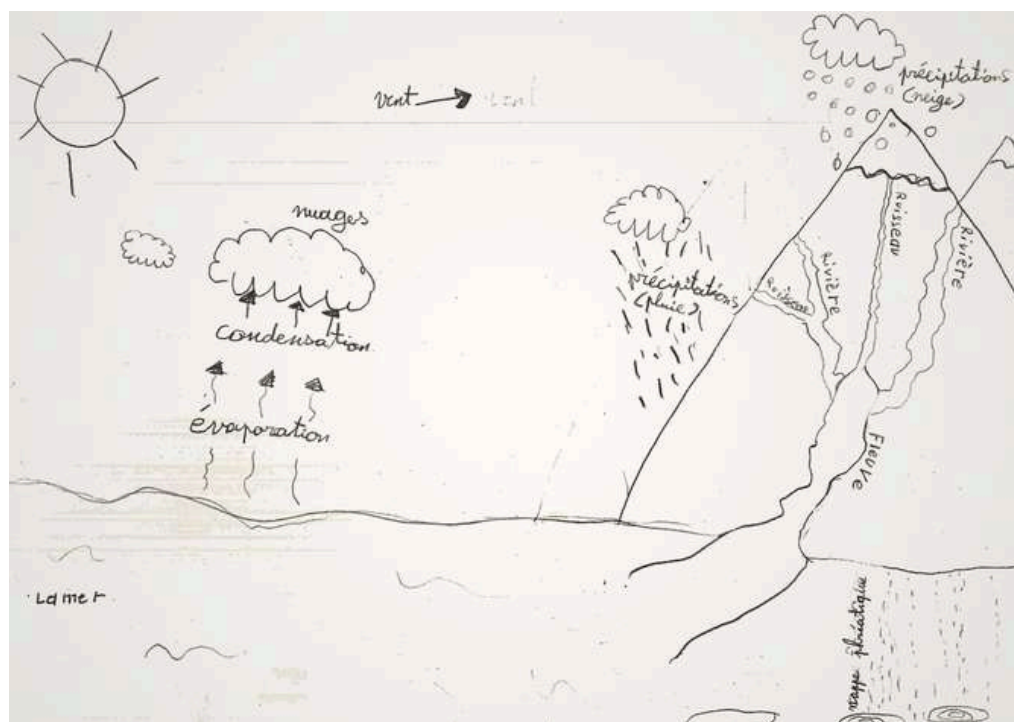 vent
précipitations
(neige)
nuages
condensation
évaporation
précipitations
(pluie)
Ruisseau
Rivière
Ruisseau
Rivière
Fleuve
La mer
nappe phréatique